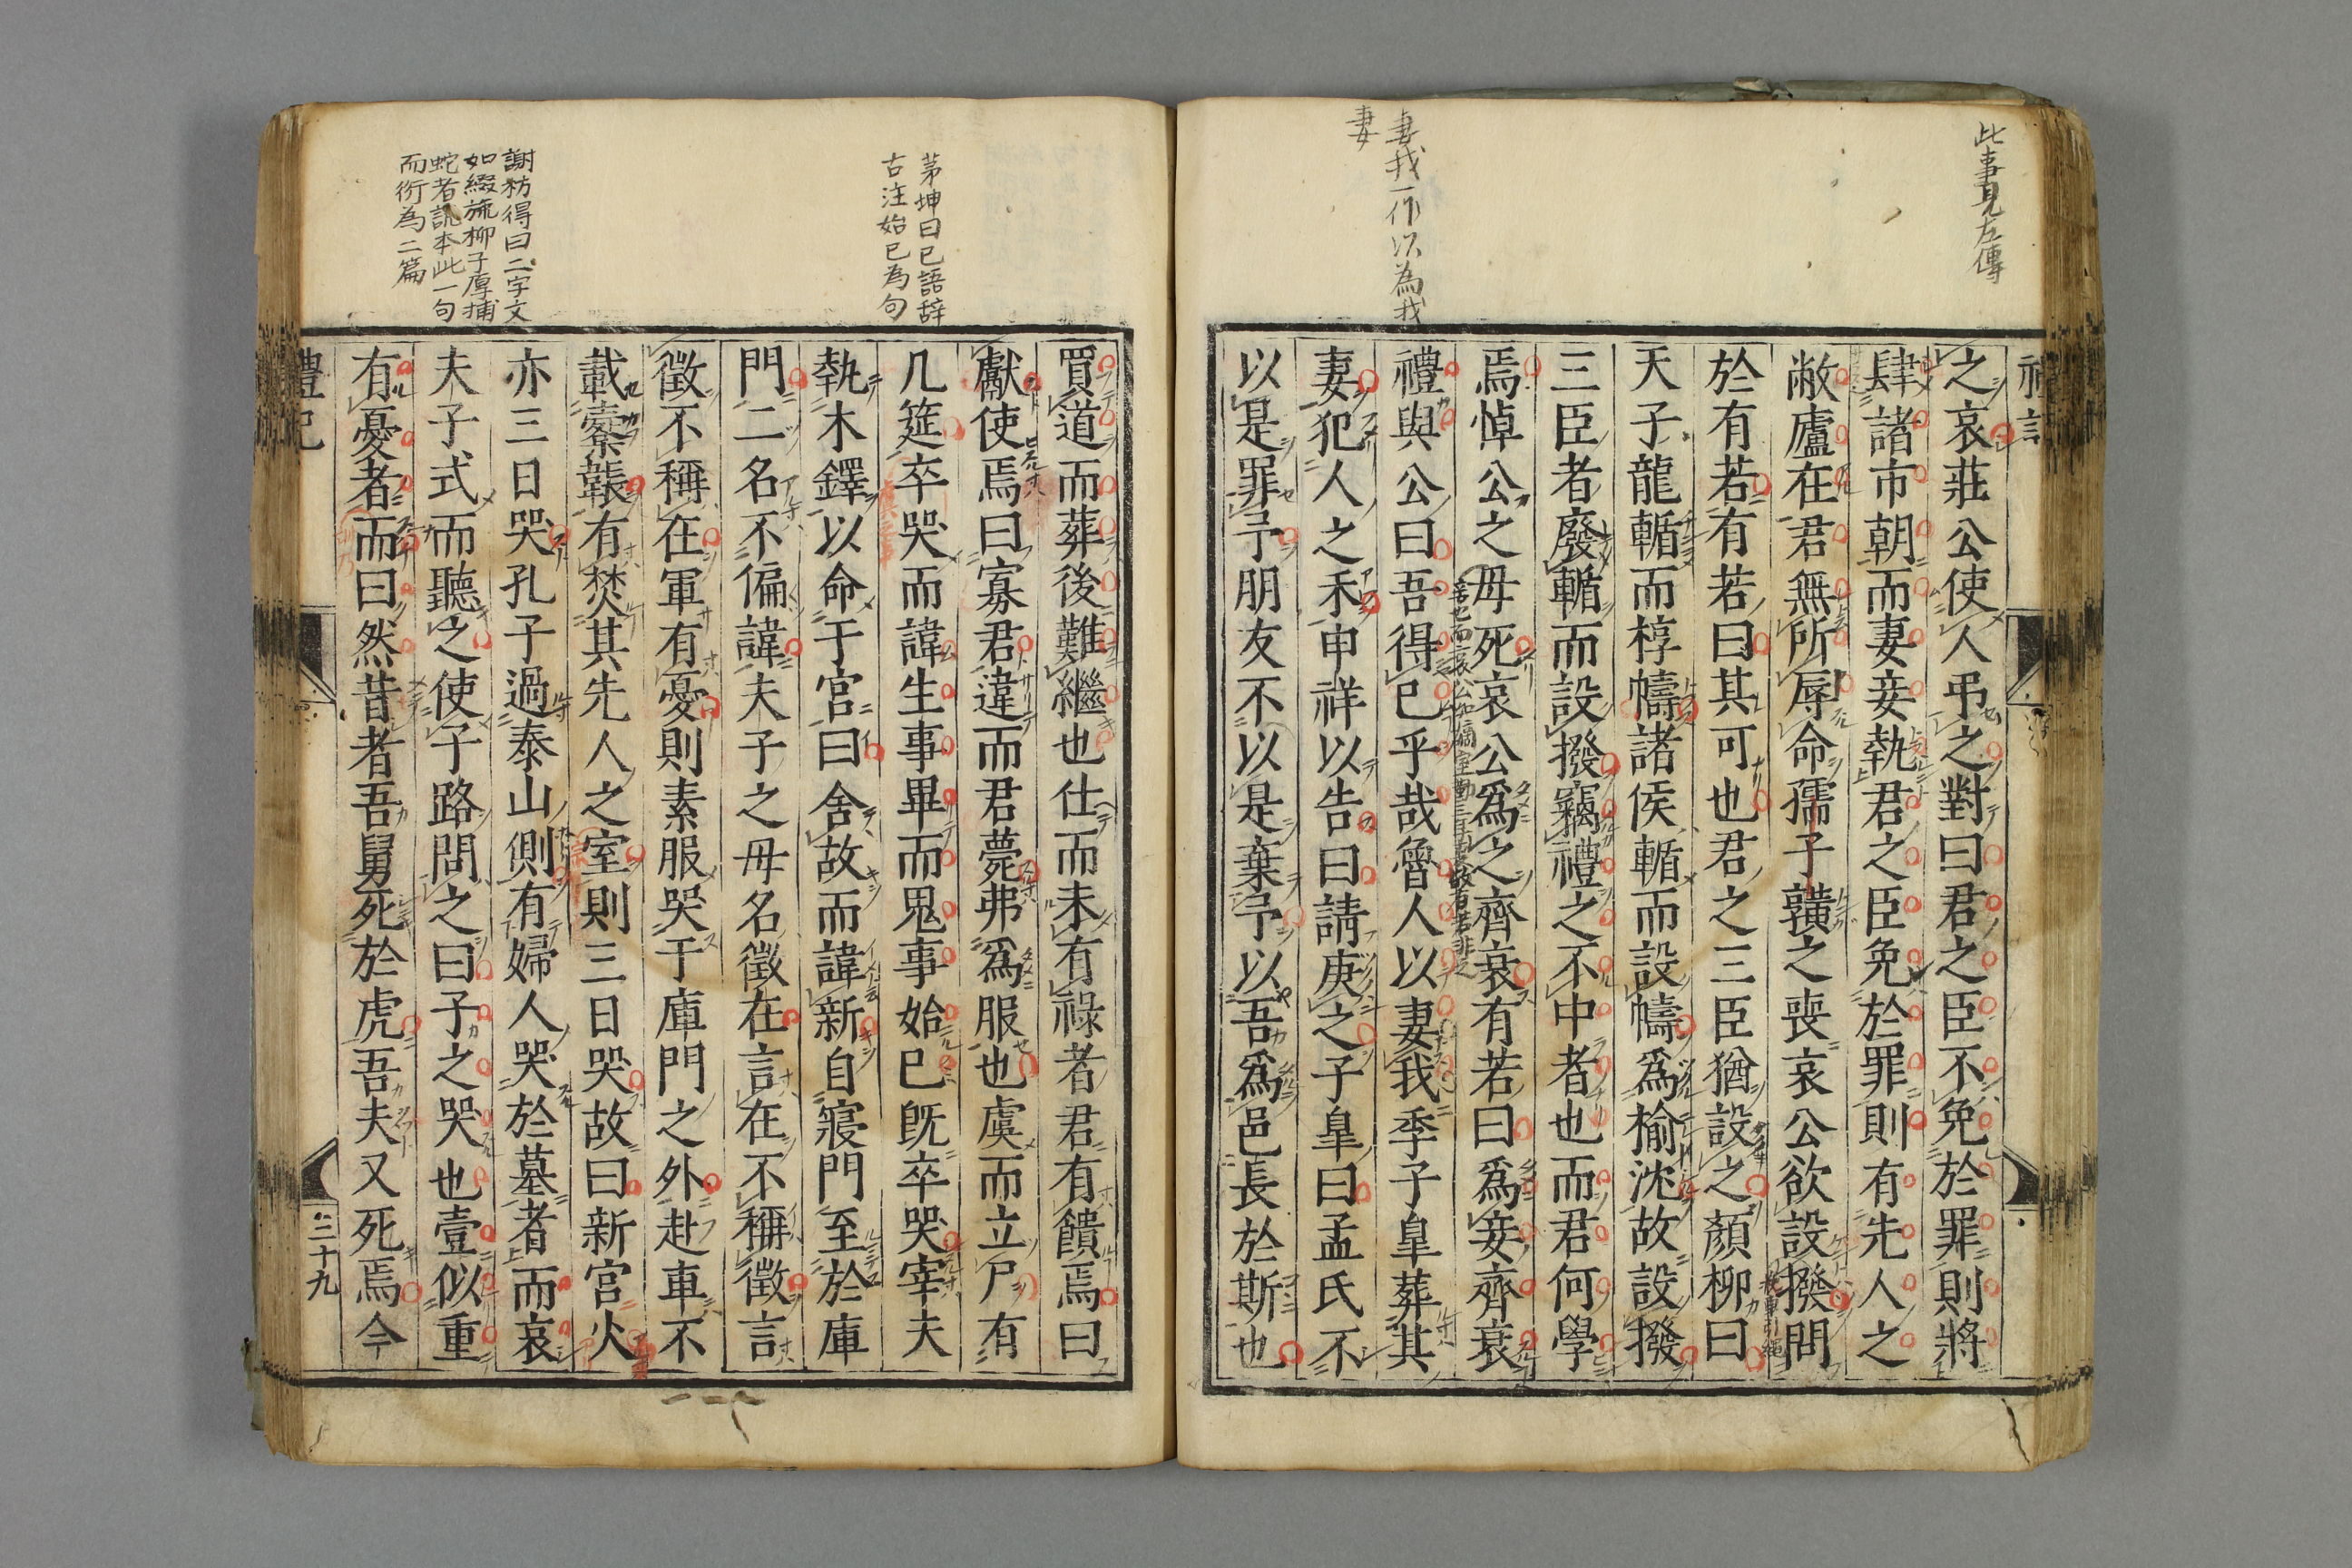 此事見左傳
妻我一作以為我
妻
之哀莊公使人弔之對曰君之臣不免於罪則將
肆諸市朝而妻妾執君之臣免於罪則有先人之
敝廬在君無所辱命孺子䵍之喪哀公欲設撥問
於有若有若曰其可也君之三臣猶設之顏柳曰
天子龍輴而椁幬諸侯輴而設幬爲榆沈故設撥
三臣者廢輴而設撥竊禮之不中者也而君何學
焉悼公之母死哀公爲之齊衰有若曰爲妾齊衰
禮與公曰吾得已乎哉魯人以妻我季子皐葬其
妻犯人之禾申祥以告曰請庚之子皐曰孟氏不
以是罪予朋友不以是棄予以吾爲邑長於斯也
茅坤曰已語辞
古注始已為句
謝枋得曰二字文
如綴旒柳子厚捕
蛇者說本此一句
而衍為二篇
買道而葬後難繼也仕而未有祿者君有饋焉曰
獻使焉曰寡君違而君薨弗爲服也虞而立尸有
几筵卒哭而諱生事畢而鬼事始已旣卒哭宰夫
執木鐸以命于宮曰舍故而諱新自寢門至於庫
門二名不偏諱夫子之母名徵在言在不稱徵言
徵不稱在軍有憂則素服哭于庫門之外赴車不
載櫜韔有焚其先人之室則三日哭故曰新宮火
亦三日哭孔子過泰山側有婦人哭於墓者而哀
夫子式而聽之使子路問之曰子之哭也壹似重
有憂者而曰然昔者吾舅死於虎吾夫又死焉今
禮記
三十九